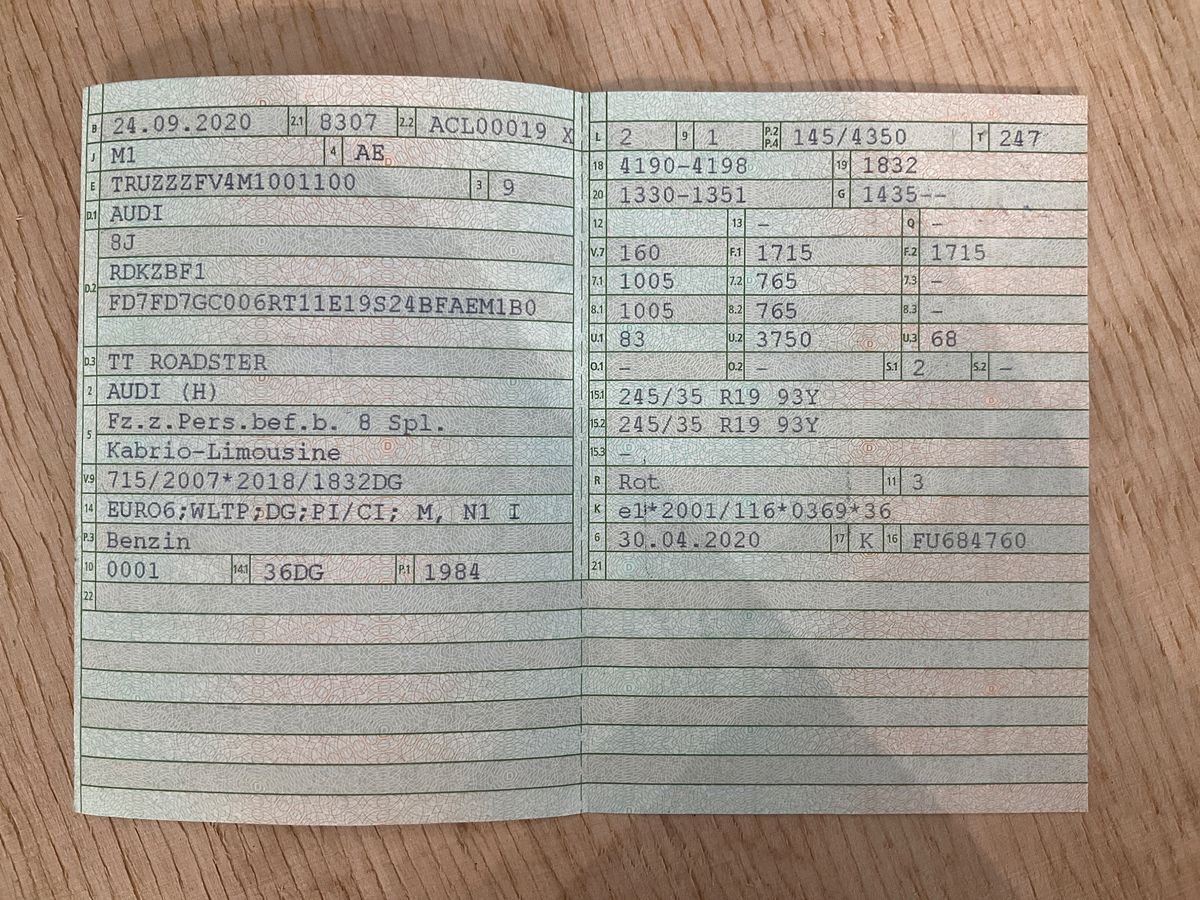 B 24.09.2020 2.1 8307 2.2 ACL00019 X
J M1 4 AE
E TRUZZZFV4M1001100 3 9
D.1 AUDI
D.2 8J
RDKZBF1
FD7FD7GC006RT11E19S24BFAEM1B0
D.3 TT ROADSTER
2 AUDI (H)
5 Fz.z.Pers.bef.b. 8 Spl.
Kabrio-Limousine
V.9 715/2007*2018/1832DG
14 EURO6;WLTP;DG;PI/CI; M, N1 I
P.3 Benzin
10 0001 14.1 36DG P.1 1984
22
L 2 9 1 P.2 P.4 145/4350 T 247
18 4190-4198 19 1832
20 1330-1351 G 1435--
12 13 - Q -
V.7 160 F.1 1715 F.2 1715
7.1 1005 7.2 765 7.3 -
8.1 1005 8.2 765 8.3 -
U.1 83 U.2 3750 U.3 68
O.1 - O.2 - S.1 2 S.2 -
15.1 245/35 R19 93Y
15.2 245/35 R19 93Y
15.3 -
R Rot 11 3
K e1*2001/116*0369*36
6 30.04.2020 17 K 16 FU684760
21